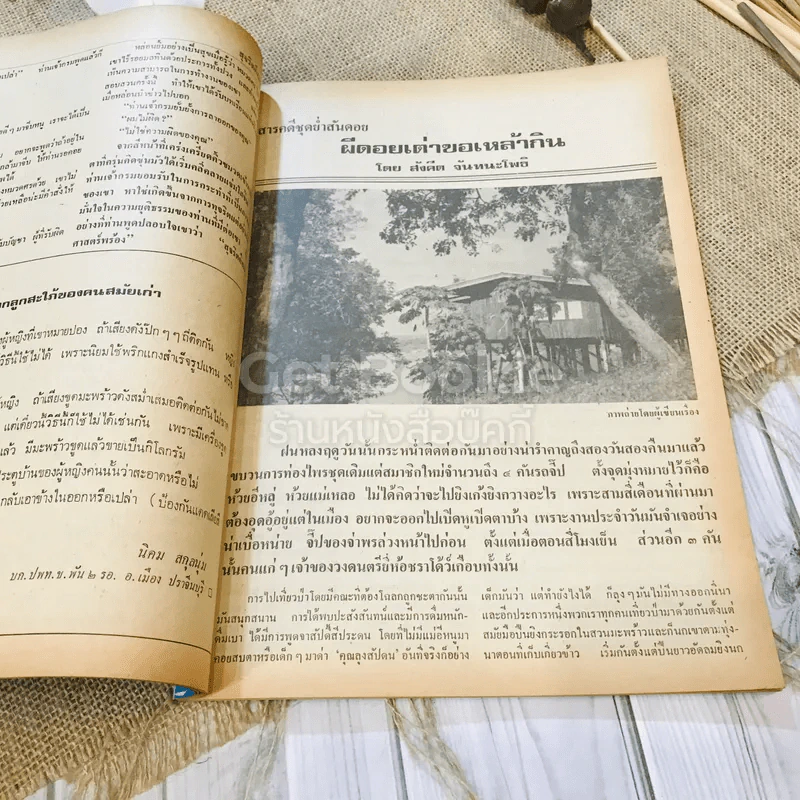 หลอนยิ้มอย่างเป็นสุขเมื่อรู้ว่า
เขาไร้รอยมลทินด้วยประการทั้งปวง
เห็นความสามารถในการทำงานของเขา
สอบสวนครั้งนี้ ทำให้เขาได้รับ
เมื่อหล่อนนำข่าวไปบอก
"ท่านเจ้ากรมยับยั้งการลาออกของคุณ"
"ผมไม่ผิด?"
"ไม่ใช่ความผิดของคุณ"
จากสีหน้าที่เคร่งเครียดคิ้วขมวด
ตาที่รุ่นคิดขุ่นมัวได้เริ่มคลี่คลาย
ท่านเจ้ากรมยอมรับในการกระทำ
ของเขา พาใช่เกิดขึ้นจากการทุจริต
มั่นใจในความยุติธรรมของท่านที่มีต่อเขา
อย่างที่ท่านพูดปลอบใจเขาว่า
ศาสตร์พร้อง"
เปล่า" ท่านเจ้ากรมพูดแล้วก็
ดีๆ มาจีบหนู เราจะได้เป็น
อยากจะพูดว่าถ้าอยู่ใน
กล้ามาจีบ ให้ท่านรอคอย
เหมวดศรด้วย เขาไม่
บัญชา ผู้ที่รับผิด
ลูกสะใภ้ของคนสมัยเก่า
ผู้หญิงที่เขาหมายปอง ถ้าเสียงดังปึกๆๆ ถี่ติดกัน
วิธีนี้ใช้ไม่ได้ เพราะนิยมใช้พริกแกงสำเร็จรูปแทน
หญิง ถ้าเสียงขูดมะพร้าวดังสม่ำเสมอติดต่อกันไม่ขาด
แต่เดี๋ยวนี้วิธีนี้ก็ใช้ไม่ได้เช่นกัน เพราะมีเครื่องขูด
แล้ว มีมะพร้าวขูดแล้วขายเป็นกิโลกรัม
ประตูบ้านของผู้หญิงคนนั้นว่าสะอาดหรือไม่
กลับเอาข้างในออกหรือเปล่า
นิคม สกุลนุ่ม
บก.ปพท.ข.พัน ๒ รอ. อ.เมือง ปราจีนบุรี □
สารคดีชุดย่ำสันดอย
ผีดอยเต่าขอเหล้ากิน
โดย สังคีต จันทนะโพธิ
Get Bookie
ร้านหนังสือบุ๊คกี้
ภาพถ่ายโดยผู้เขียนเรื่อง
ฝนหลงฤดูวันนั้นกระหน่ำติดต่อกันมาอย่างน่ารำคาญถึงสองวันสองคืนมาแล้ว
ขบวนการท่องไพรชุดเดิมแต่สมาชิกใหม่จำนวนถึง ๔ คันรถจี๊ป ตั้งจุดมุ่งหมายไว้ก็คือ
ห้วยอีหลู่ ห้วยแม่เหลอ ไม่ได้คิดว่าจะไปยิงเก้งยิงกวางอะไร เพราะสามสี่เดือนที่ผ่านมา
ต้องอุดอู้อยู่แต่ในเมือง อยากจะออกไปเปิดหูเปิดตาบ้าง เพราะงานประจำวันมันจำเจอย่าง
น่าเบื่อหน่าย จี๊ปของจ่าพรล่วงหน้าไปก่อน ตั้งแต่เมื่อตอนสี่โมงเย็น ส่วนอีก ๓ คัน
นั้นคนแก่ๆ เจ้าของวงดนตรียี่ห้อชราโด้วัเกือบทั้งนั้น
การไปเที่ยวป่าโดยมีคณะที่ต้องโฉลกถูกชะตากันนั้น
มันสนุกสนาน การได้พบปะสังสันทน์และมีการดื่มหนัก-
ดื่มเบา ได้มีการพูดจาสัปดี้สีประดน โดยที่ไม่มีแม่อีหนูมา
คอยสบตาหรือเด็กๆ มาด่า 'คุณลุงสัปดน' อันที่จริงก็อย่าง
เด็กมันว่า แต่ทำยังไงได้ ก็ลุงๆ มันไม่มีทางออกนี่นา
และอีกประการหนึ่งพวกเราทุกคนเที่ยวป่ามาด้วยกันตั้งแต่
สมัยมือปืนยิงกระรอกในสวนมะพร้าวและก็นกเขาตามทุ่ง-
นาตอนที่เก็บเกี่ยวข้าว เริ่มกันตั้งแต่ปืนยาวอัดลมยิงนก